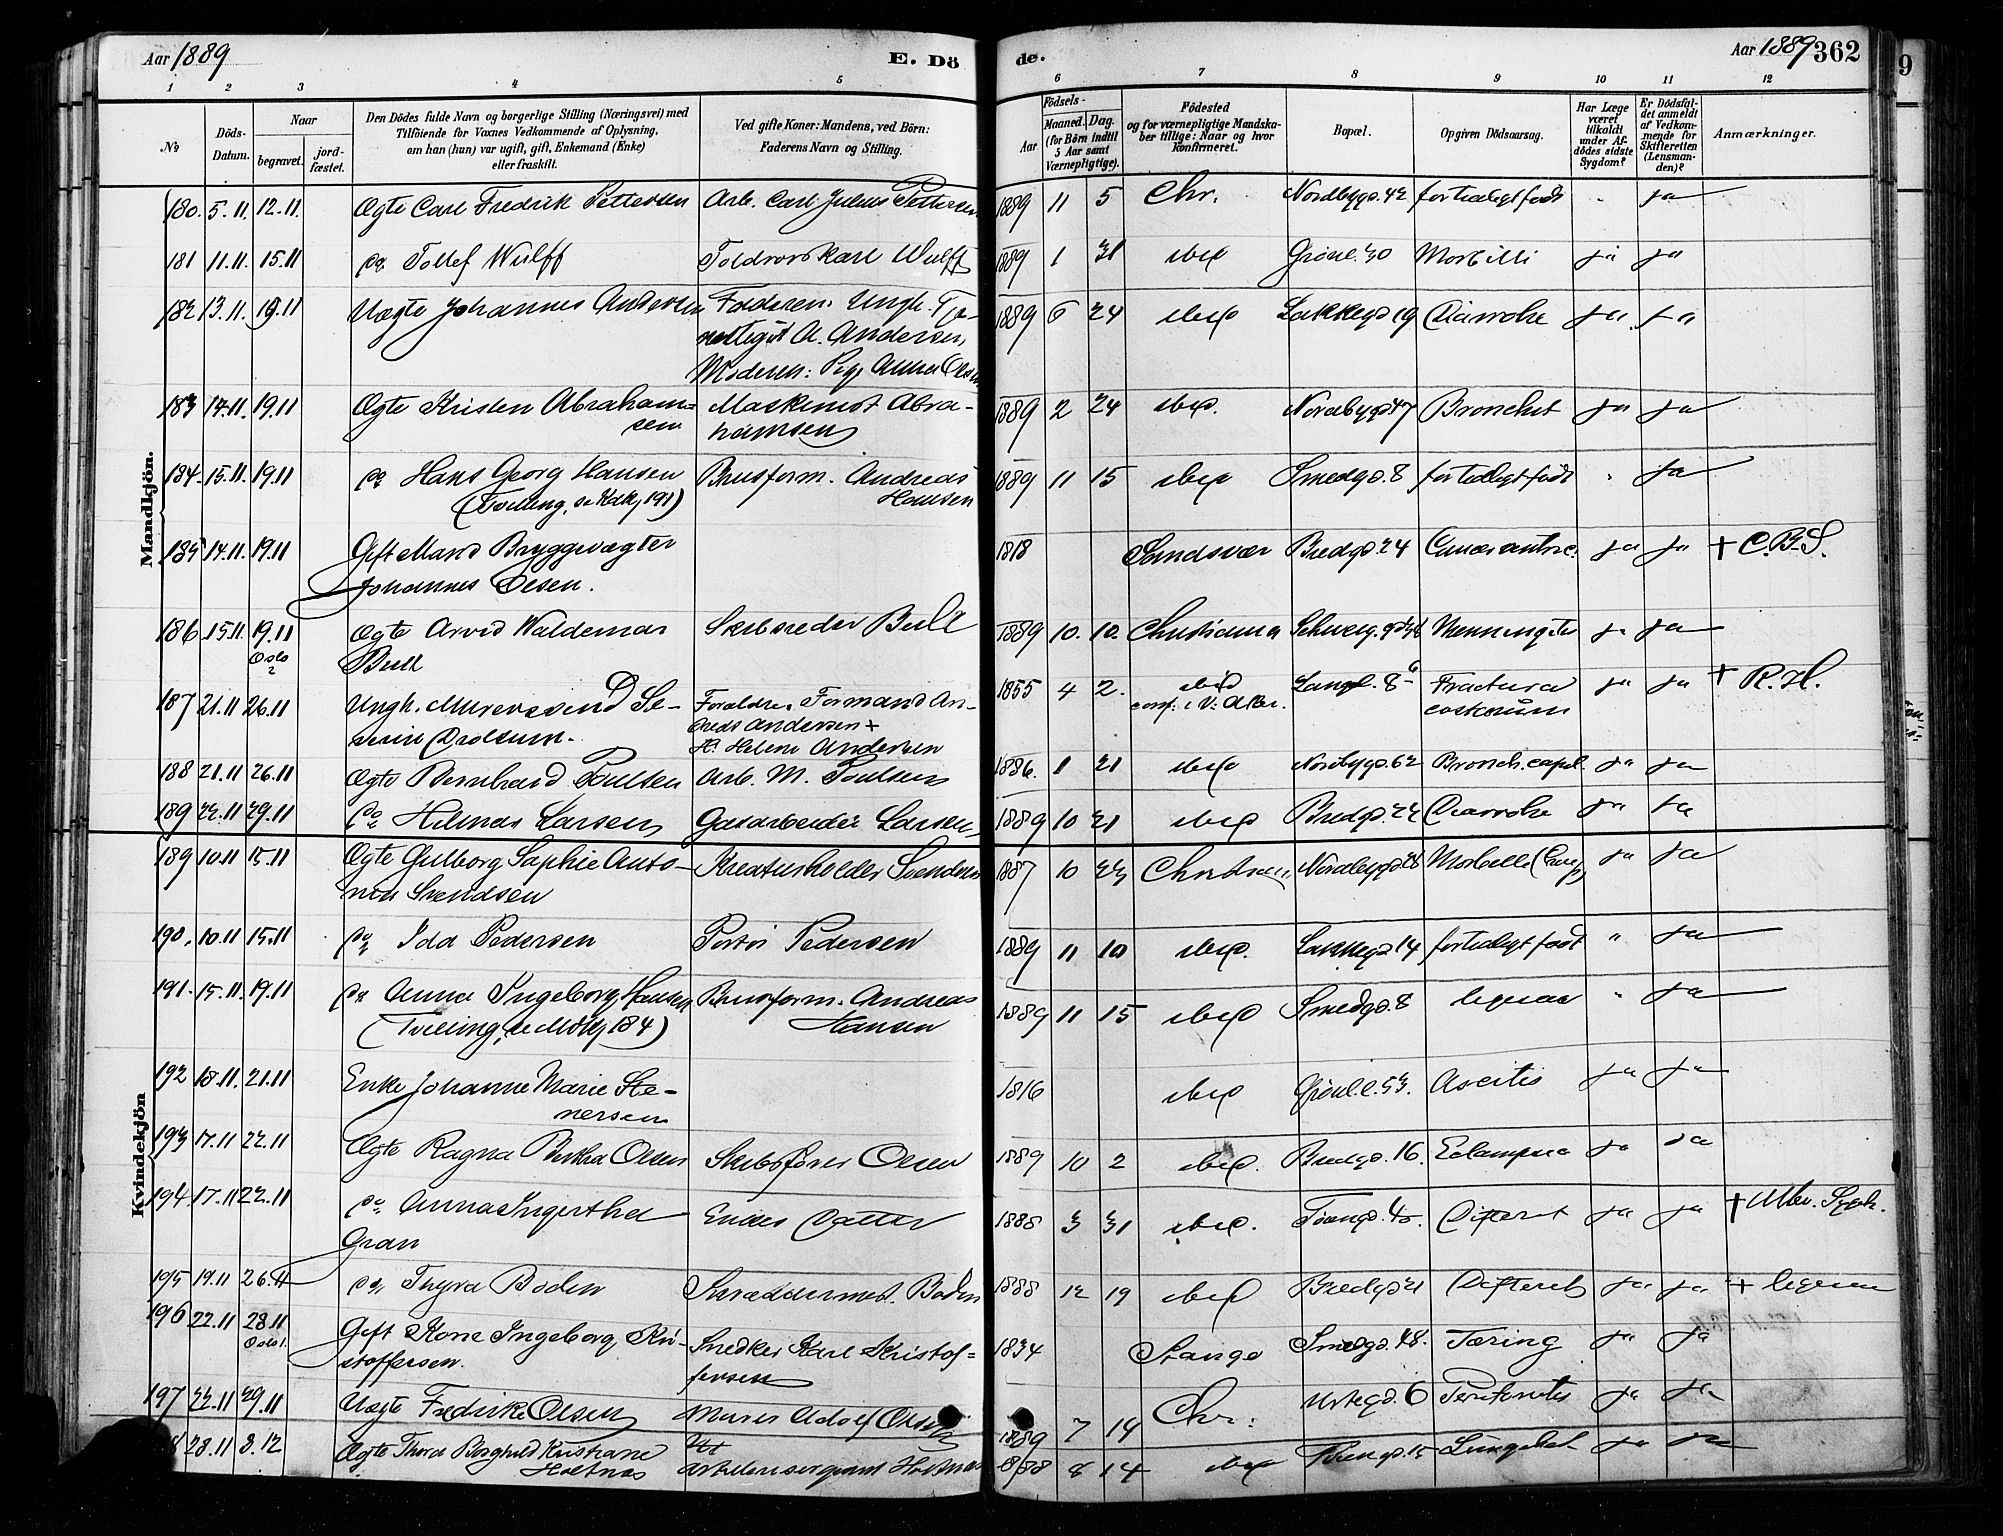 Aar 1889 E. Dö
de. Aar 1889 362
9
1 2 3 4 5 6 7 8 9 10 11 12
No
Döds-
Datum.
Naar
begravet.
jord-
fæstet.
Den Dödes fulde Navn og borgerlige Stilling (Næringsvei) med
Tilföiende for Voxnes Vedkommende af Oplysning,
om han (hun) var ugift, gift, Enkemand (Enke)
eller fraskilt.
Ved gifte Koner: Mandens, ved Börn:
Faderens Navn og Stilling.
Födsels-
Aar
Maaned. Dag.
(for Börn indtil
5 Aar samt
Værnepligtige).
Födested
og for værnepligtige Mandska-
ber tillige: Naar og hvor
konfirmeret.
Bopæl.
Opgiven Dödsaarsag.
Har Læge
været
tilkaldt
under Af-
dödes sidste
Sygdom?
Er Dödsfal-
det anmeldt
af Vedkom-
mende for
Skifteretten
(Lensman-
den)?
Anmærkninger.
Mandkjön.
180. 5.11. 12.11. Ægte Carl Fredrik Pettersen Arb. Carl Julius Pettersen 1889 11 5 Chr. Nordbygd. 42 fortidligt födt " ja
181 11.11. 15.11 do Tollef Wulff Toldrors Karl Wulff 1889 1 31 ibid Grönl. 30 Morbilli ja ja
182 13.11. 19.11 Uægte Johannes Andersen Faderen: Ungk. Tje-
nestegut A. Andersen,
Moderen: Pige Anna Olsen 1889 6 24 ibid Lakkegd 19 Diarrohe ja ja
183 14.11. 19.11 Ægte Kristen Abraham=
sen Maskinist Abra-
hamsen 1889 2 24 ibid. Nordbygd 47 Bronchit ja ja
184. 15.11. 19.11 do Hans Georg Hansen
(Tvilling, se Kdkj 191) Brusform. Andreas
Hansen 1889 11 15 ibid Smedgd. 8 fortidligt födt " ja
185 14.11. 19.11 Gift Mand Bryggevagter
Johannes Olsen. 1818 Sandsvær Bredgd. 24 ja ja + C.B.S.
186 15.11. 19.11
Oslo Ægte Arvid Waldemar
Bull Skibsreder Bull 1889 10. 10. Christiania Meningitis ja ja
187 21.11 26.11 Ungk. Murersvend Se-
verin Forældre: Formand An-
dreas Andersen +
H. Helene Andersen 1855 4 2. ibid
conf. i V. Aker. Langl. 8 Fractura
costarum ja ja + R.H.
188 21.11 26.11 Ægte Bernhard Poulsen Arb. M. Poulsen 1886. 1 21 ibid Nordbygd. 62 Bronch. capil. ja ja
189 22.11 29.11 do Hilmar Larsen Gasarbeider Larsen 1889 10 21 ibid Bredgd. 22 Diarrohe ja ja
Kvindekjön
189 10.11 15.11 Ægte Gulborg Sophie Anto-
nia Svendsen Kreaturholder Svendsen 1887 10 23 Christiania Nordbygd 28 Morbilli ja ja
190. 10.11 15.11 do Ida Pedersen Portör Pedersen 1889 11 10 ibid. Lakkegd 14 fortidligt födt " ja
191. 15.11. 19.11 do Anna Ingeborg Hansen
(Tvilling, se Mdkj 184) Brusform. Andreas
Hansen 1889 11 15 ibid Smedgd. 8 ligesaa " ja
192 18.11. 21.11 Enke Johanne Marie Ste-
nersen 1816 ibid Grönl. l. 53. Ascites ja ja
193 17.11 22.11 Ægte Ragna Olsen Skibsförer Olsen 1889 10 2 ibid. Bredgd. 16. Eclampsia ja ja
194 17.11 22.11 do Anna Ingertha
Gran Enkes Datter 1888 3 31 ibid. Difterit ja ja +
195 19.11 26.11 do Thyra Boden Skræddermest. Boden 1888 12 19 ibid Bredgd 21 Difterit ja ja + ligesaa
196 22.11 28.11 Gift Kone Ingeborg Kri-
stoffersen. Snedker Karl Kristof=
fersen 1834 Stange Smedgd. 48. Tæring ja ja
197 22.11 29.11 Uægte Fredrikke Olsen Murer Adolf Olsen 1889 7 14 Chr. Urtegd. 6 Peritonitis ja ja
28.11 3.12 Ægte Thora Borghild Kristiane
Holtnæs Artillerisergeant Holtnæs 1888 8 14 ibid ja ja